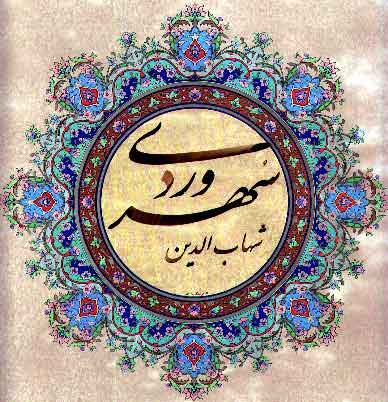 سُهروردی
شهاب الدین